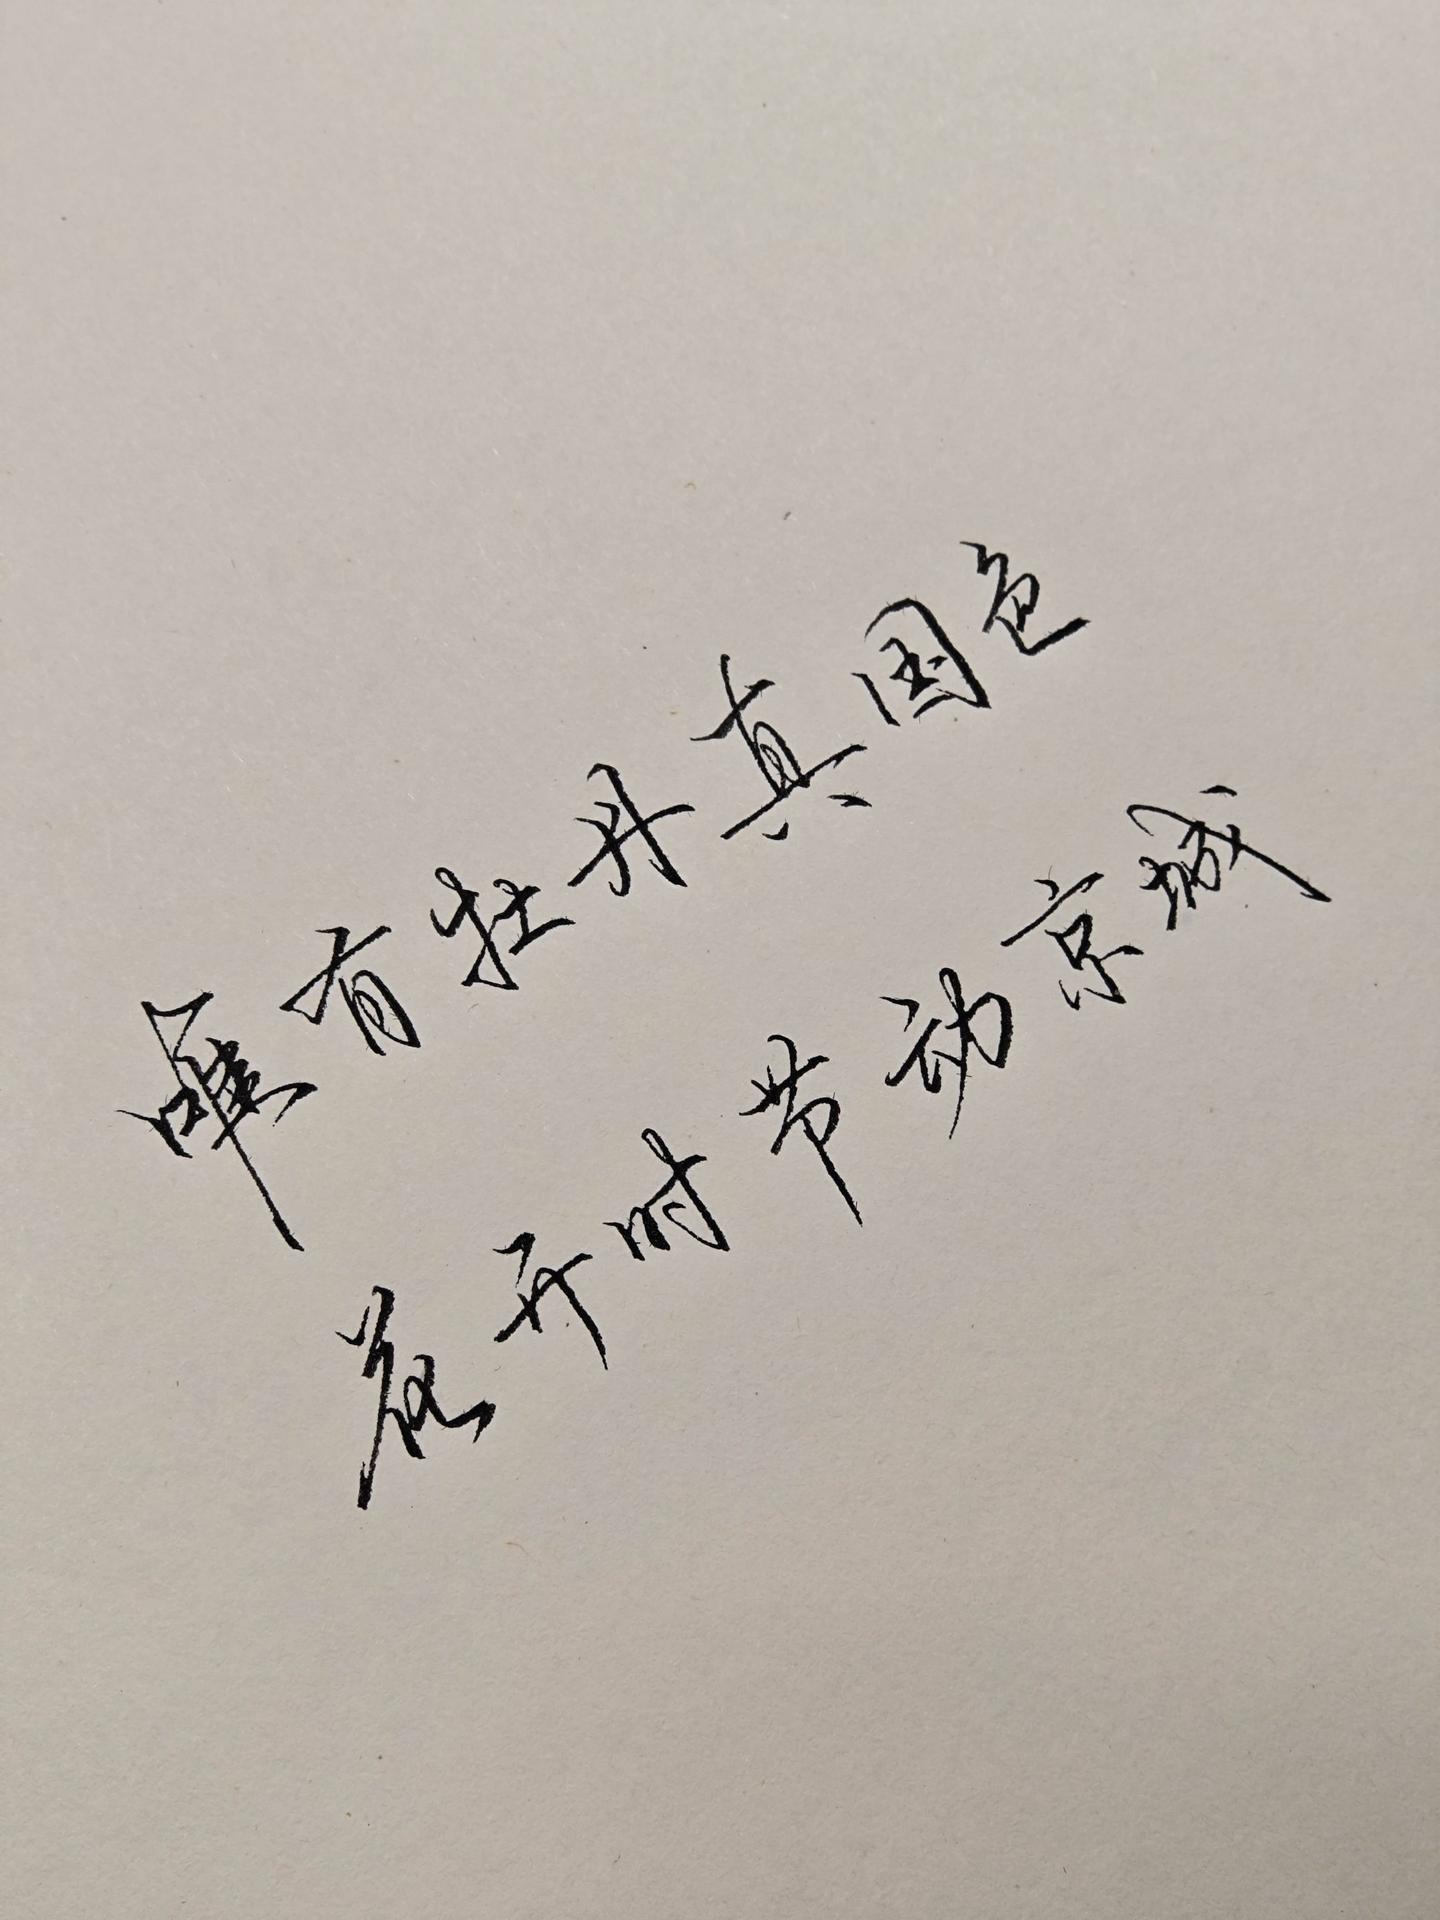 唯有牡丹真国色
花开时节动京城